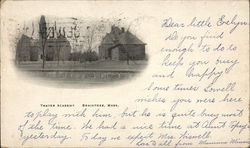 Dear little Evelyn
Do you find
enough to do to
keep you busy
and happy?
Some times Lowell
wishes you were here
THAYER ACADEMY BRAINTREE, MASS.
to play with him, but he is quite busy most
of the time. We had a nice time at Aunt
yesterday. To day we expect Mrs.
Love to all from